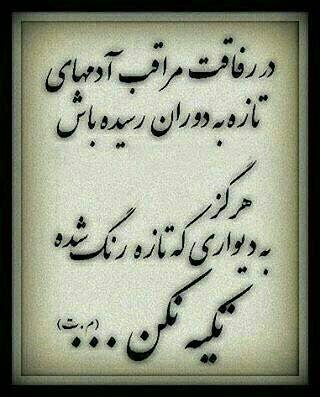 در رفاقت مراقب آدمهای
تازه به دوران رسیده باش
هرگز
به دیواری که تازه رنگ شده
تکیه نکن ... (م.ت)